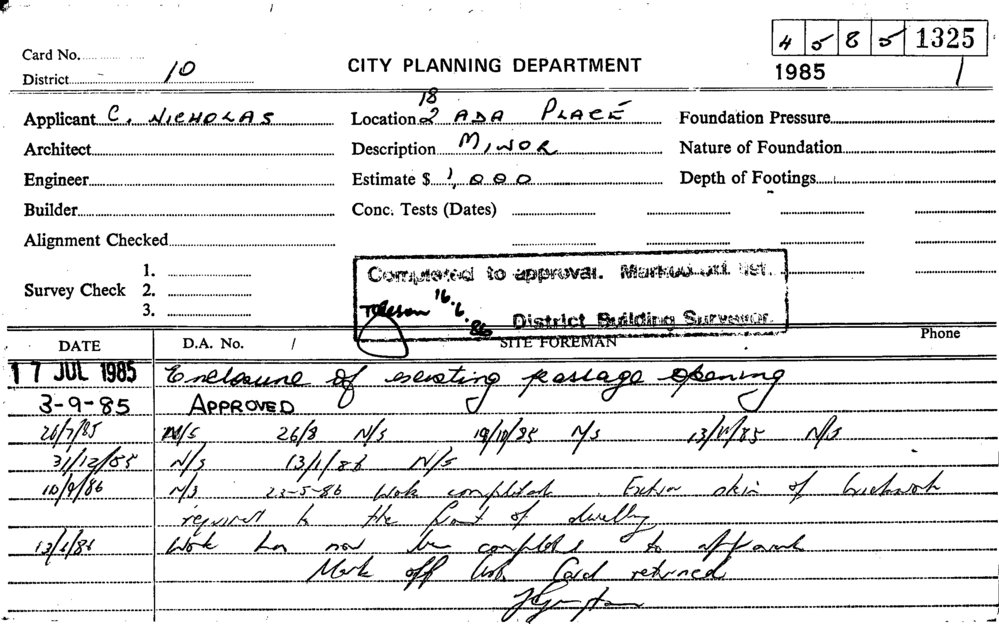 4 5 8 5 1325
Card No.
District 10
CITY PLANNING DEPARTMENT
1985 1
Applicant C. NICHOLAS
Location 18/2 ADA PLACE
Foundation Pressure
Architect
Description MINOR
Nature of Foundation
Engineer
Estimate $ 1,000
Depth of Footings
Builder
Conc. Tests (Dates)
Alignment Checked
Survey Check 1. 2. 3.
Completed to approval. Marked off list.
16.6.86
District Building Surveyor.
DATE D.A. No. / SITE FOREMAN Phone
17 JUL 1985 Enclosure of existing passage opening
3-9-85 APPROVED
26/7/85 N/S 26/8 N/S 19/10/85 N/S 13/11/85 N/S
31/12/85 N/S 13/1/86 N/S
10/9/86 N/S 23-5-86 Work completed. Extra skin of brickwork
required to the front of dwelling
13/6/86 Work has now been completed to approval
Mark off list Card returned